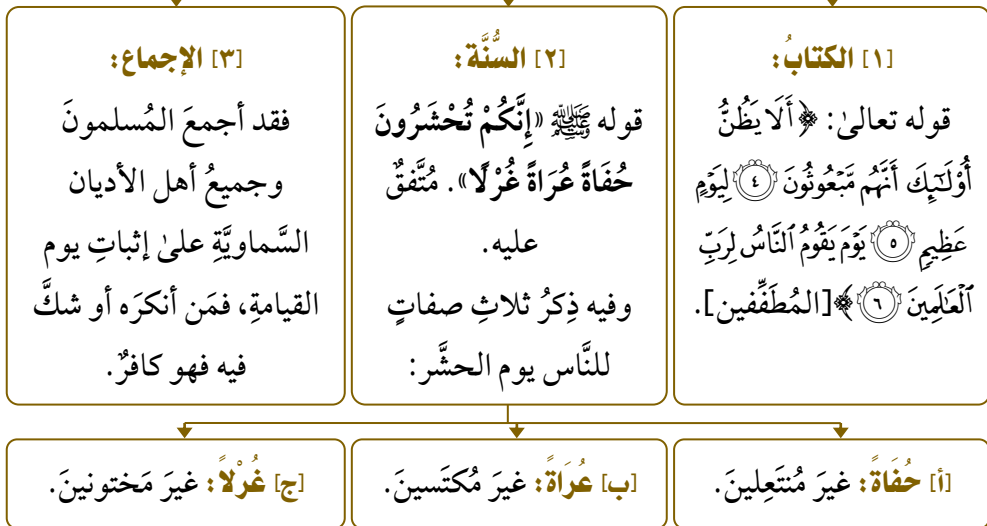 [١] الكتابُ:
قوله تعالىٰ: ﴿أَلَا يَظُنُّ
أُوْلَٰٓئِكَ أَنَّهُم مَّبۡعُوثُونَ ٤ لِيَوۡمٍ
عَظِيمٖ ٥ يَوۡمَ يَقُومُ ٱلنَّاسُ لِرَبِّ
ٱلۡعَٰلَمِينَ ٦﴾ [المُطَفِّفين].
[٢] السُّنَّة:
قوله ﷺ «إِنَّكُمْ تُحْشَرُونَ
حُفَاةً عُرَاةً غُرْلًا». مُتَّفقٌ
عليه.
وفيه ذِكرُ ثلاثِ صفاتٍ
للنَّاس يوم الحشَّر:
[٣] الإجماع:
فقد أجمعَ المُسلمونَ
وجميعُ أهل الأديان
السَّماويَّةِ علىٰ إثباتِ يوم
القيامةِ، فمَن أنكرَه أو شكَّ
فيه فهو كافرٌ.
[أ] حُفَاةً: غيرَ مُنتَعِلينَ.
[ب] عُرَاةً: غيرَ مُكتَسينَ.
[ج] غُرْلاً: غيرَ مَختونينَ.